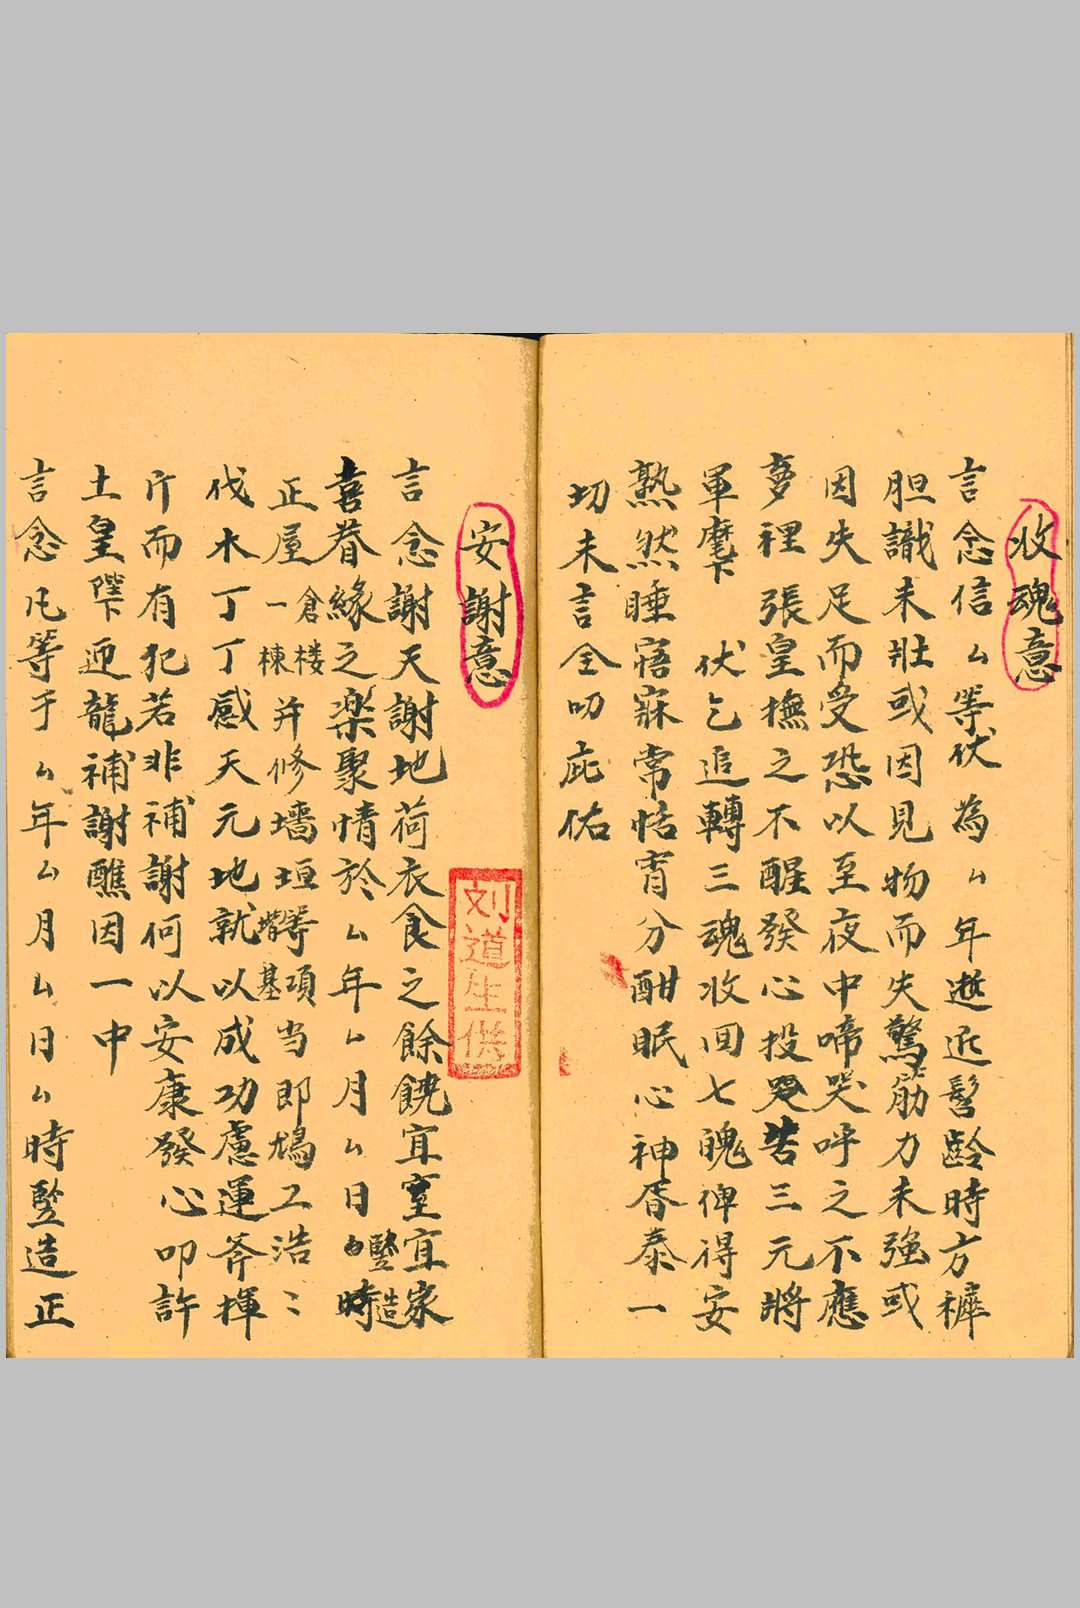 收魂意
言念信厶等伏為厶年逝近髫齡時方褲
胆識未壯或因見物而失驚筋力未強或
因失足而受恐以至夜中啼哭呼之不應
夢裡張皇撫之不醒發心投哭告三元將
軍麾下伏乞追轉三魂收回七魄俾得安
熟然睡寤寐常恬宵分酣眠心神胥泰一
切未言全叨庇佑
安謝意
言念謝天謝地荷衣食之餘饒宜室宜家
喜眷緣之楽聚情於厶年厶月厶日時豎造
正屋一棟倉楼并修墻垣等項墖基当即鳩工浩〻
伐木丁丁感天元地就以成功慮運斧揮
斤而有犯若非補謝何以安康發心叩許
土皇陛下迎龍補謝醮因一中
言念凡等于厶年厶月厶日厶時豎造正
刘道生供